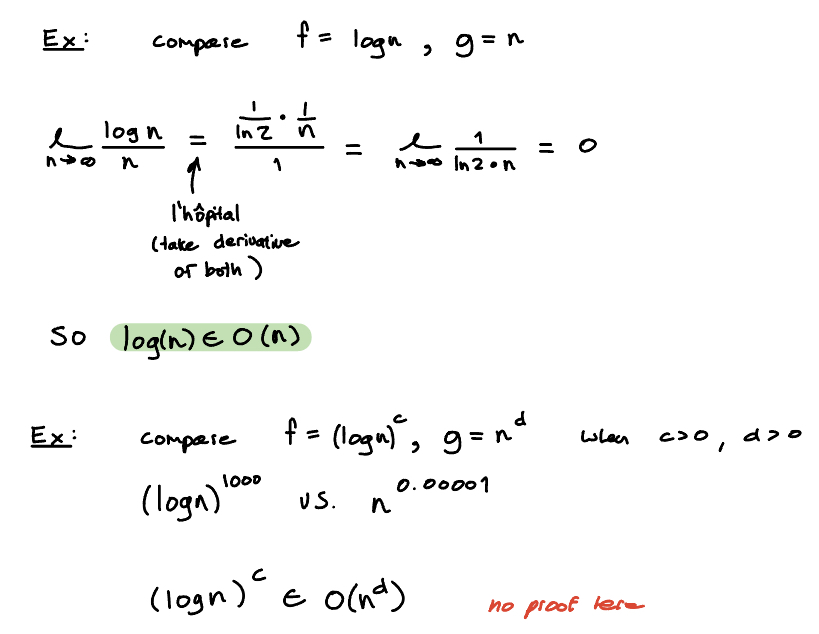 Ex: compare f = log n , g = n
lim n→∞ log n / n = (1/ln2 · 1/n) / 1 = lim n→∞ 1/(ln2 · n) = 0
l'hôpital
(take derivative
of both)
So log(n) ∈ O(n)
Ex: compare f = (log n)^c, g = n^d when c>0, d>0
(log n)^1000 vs. n^0.00001
(log n)^c ∈ O(n^d) no proof here